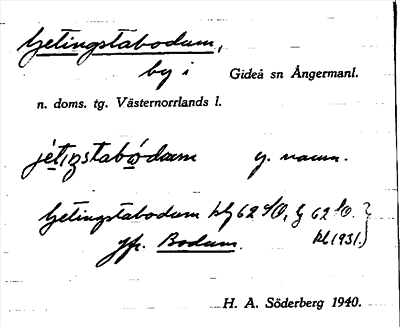 Getingstabodum,
by i Gideå sn Ångermanl.
n. doms. tg. Västernorrlands l.
jétiŋstabódum y. namn.
Getingstabodum blg 62 SO, G 62 SO. }
Jfr. Bodum. bl. 1931.)
H. A. Söderberg 1940.